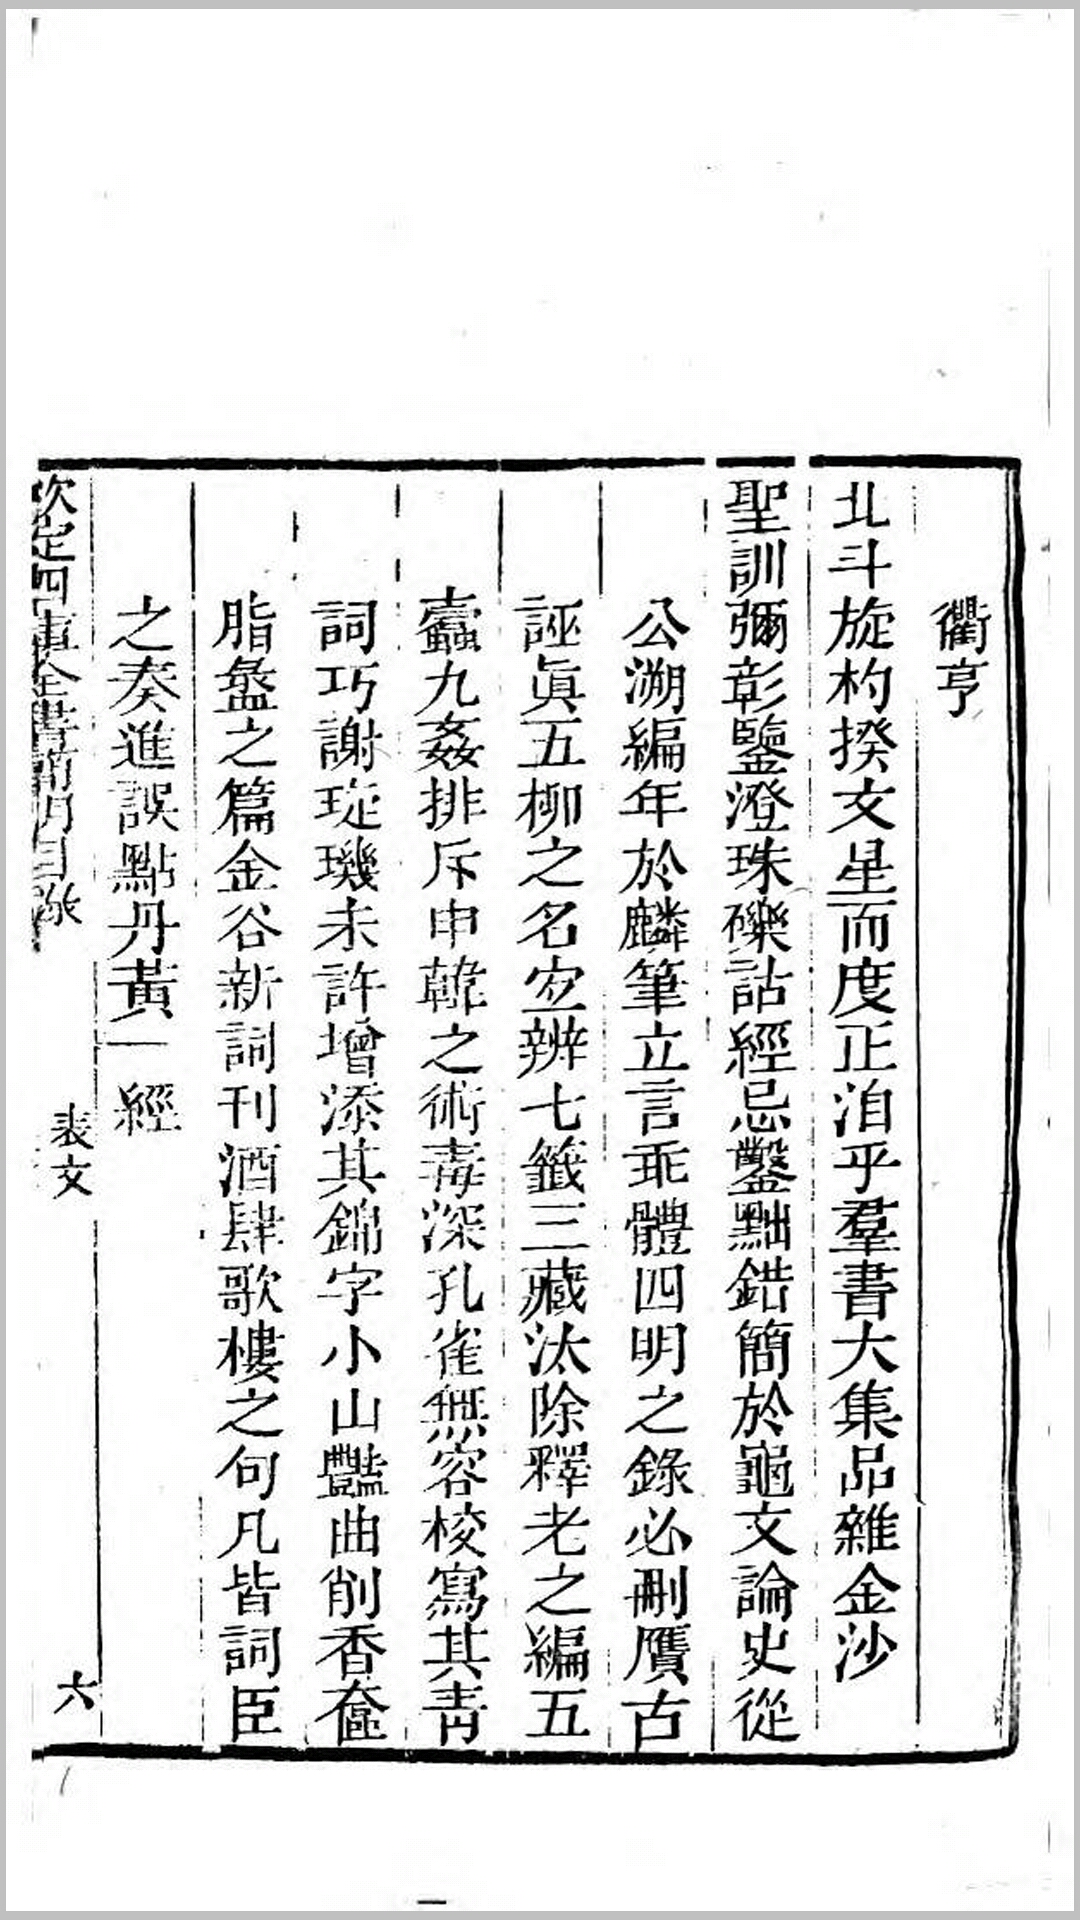 衢亨
北斗旋杓揆文星而度正洎乎羣書大集品雜金沙
聖訓彌彰鑒澄珠礫詁經忌鑿黜錯簡於龜文論史從
公溯編年於麟筆立言乖體四明之錄必刪贋古
誣眞五柳之名宜辨七籤三藏汰除釋老之編五
蠹九姦排斥申韓之術毒深孔雀無容校寫其青
詞巧謝琁璣未許增添其錦字小山豔曲削香奩
脂盝之篇金谷新詞刊酒肆歌樓之句凡皆詞臣
之奏進誤點丹黃一經
欽定四庫全書簡明目錄
表文
六